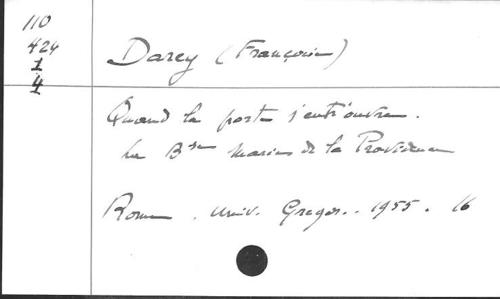 110
424
1
4
Darcy (Françoise)
Quand la porte s'entr'ouvre.
La Bse Marie de la Providence
Rome. Univ. Gregor. . 1955. 16